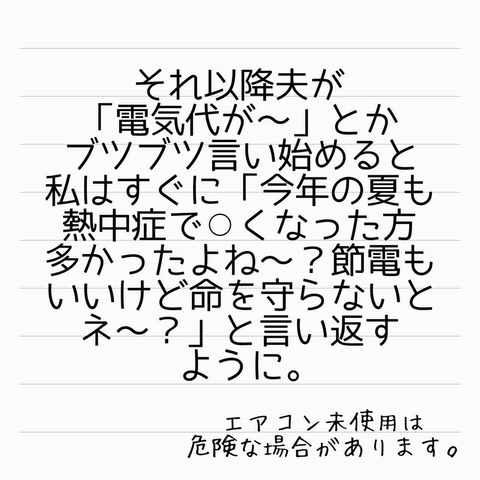 それ以降夫が
「電気代が〜」とか
ブツブツ言い始めると
私はすぐに「今年の夏も
熱中症で○くなった方
多かったよね〜？節電も
いいけど命を守らないと
ネ〜？」と言い返す
ように。
エアコン未使用は
危険な場合があります。